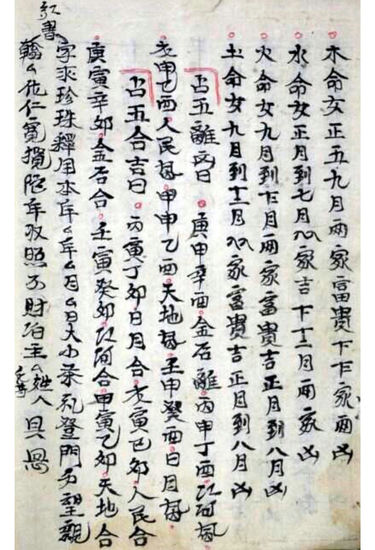 木命女正五九月兩家富貴卞卞家兩凶
水命女正月到七月必家吉卞十二月兩家凶
火命女九月到卞月兩家富貴吉正月到八月凶
土命女九月到十二月必家富貴吉正月到八月凶
占五離凶日 庚申辛酉金石離丙申丁酉江河離
戊申己酉人民離甲申乙酉天地離壬申癸酉日月離
占五合吉日 丙寅丁卯日月合戊寅己卯人民合
庚寅辛卯金石合壬寅癸卯江河合甲寅乙卯天地合
紅書
字求珍珠釋用本年厶年厶月厶日大小菜礼登門多望親
年收照不財主厶姓人 具